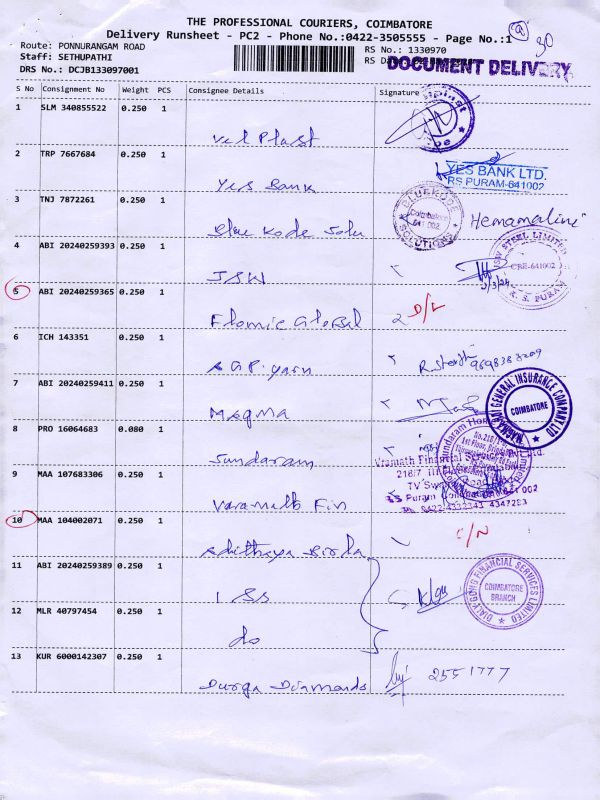 THE PROFESSIONAL COURIERS, COIMBATORE
Delivery Runsheet - PC2 - Phone No.:0422-3505555 - Page No.:1
30
Route: PONNURANGAM ROAD
RS No.: 1330970
Staff: SETHUPATHI
RS D
DOCUMENT DELIVERY
DRS No.: DCJB133097001
S No Consignment No Weight PCS Consignee Details Signature
1 SLM 340855522 0.250 1
Vel Plast
2 TRP 7667684 0.250 1
YES BANK LTD.
RS PURAM-641002
Yes Bank
3 TNJ 7872261 0.250 1
BLUEKODE SOLUTIONS
Coimbatore
641 002
Hemamalini
Blue Kode Solu
4 ABI 20240259393 0.250 1
JSW STEEL LIMITED
CBE-641002
R. S. PURAM
JSW
5 ABI 20240259365 0.250 1
D/L
Flomic Global
6 ICH 143351 0.250 1
SGP. yarn
9898383209
7 ABI 20240259411 0.250 1
MAGMA HDI GENERAL INSURANCE COMPANY LTD
COIMBATORE
Magma
8 PRO 16064683 0.080 1
Sundaram
Financial Services Pvt Ltd.
9 MAA 107683306 0.250 1
TV Swamy Road
RS Puram Coimbatore 641 002
Ph: 0422-4332343 4347283
Varamath Fin
10 MAA 104002071 0.250 1
C/N
Adithaya Birla
11 ABI 20240259389 0.250 1
FINANCIAL SERVICES LIMITED
COIMBATORE
BRANCH
ISS
12 MLR 40797454 0.250 1
do
13 KUR 6000142307 0.250 1
2551777
Durga Diamonds